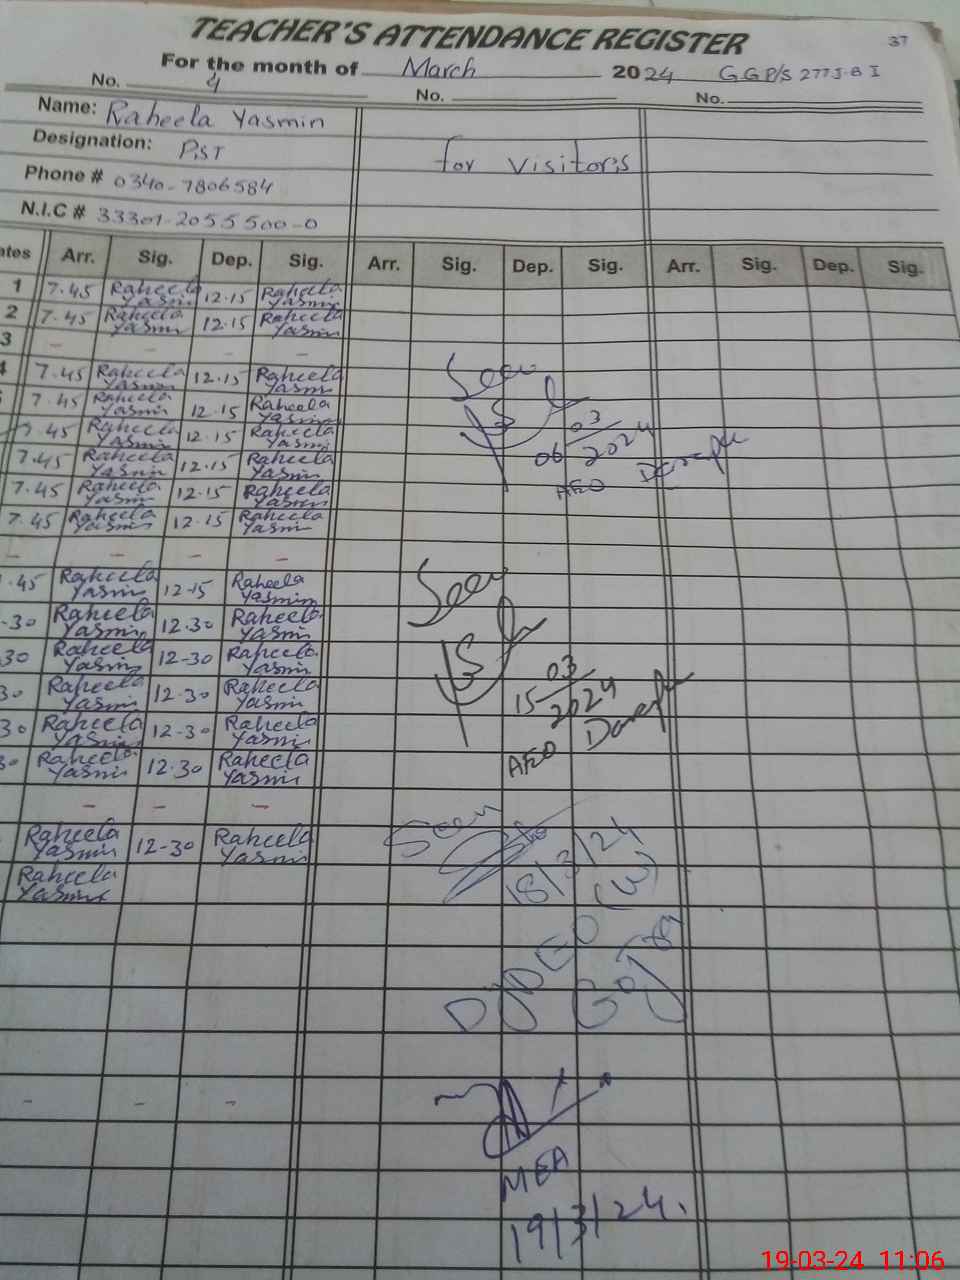 TEACHER'S ATTENDANCE REGISTER 37
For the month of March 2024 GGP/S 277J.B I
No. 4 No. No.
Name: Raheela Yasmin
Designation: PST
for visitor's
Phone # 0340-7806584
N.I.C # 33301-2055500-0
ates Arr. Sig. Dep. Sig. Arr. Sig. Dep. Sig. Arr. Sig. Dep. Sig.
1 7.45 Raheela Yasmin 12.15 Raheela Yasmin
2 7.45 Raheela Yasmin 12.15 Raheela Yasmin
3 - - - -
4 7.45 Raheela Yasmin 12.15 Raheela Yasmin
7.45 Raheela Yasmin 12.15 Raheela Yasmin
7.45 Raheela Yasmin 12.15 Raheela Yasmin
7.45 Raheela Yasmin 12.15 Raheela Yasmin
7.45 Raheela Yasmin 12.15 Raheela Yasmin
7.45 Raheela Yasmin 12.15 Raheela Yasmin
- - - -
.45 Raheela Yasmin 12-15 Raheela Yasmin
-30 Raheela Yasmin 12.30 Raheela Yasmin
30 Raheela Yasmin 12-30 Raheela Yasmin
30 Raheela Yasmin 12.30 Raheela Yasmin
30 Raheela Yasmin 12-30 Raheela Yasmin
30 Raheela Yasmin 12.30 Raheela Yasmin
- - -
Raheela Yasmin 12-30 Raheela Yasmin
Raheela Yasmin
- - -
Seen
03
06 2024
AEO
Seen
03
15 2024
AEO
Seen
18/3/24
DyDEO (W)
Gojra
MEA
19/3/24.
19-03-24 11:06